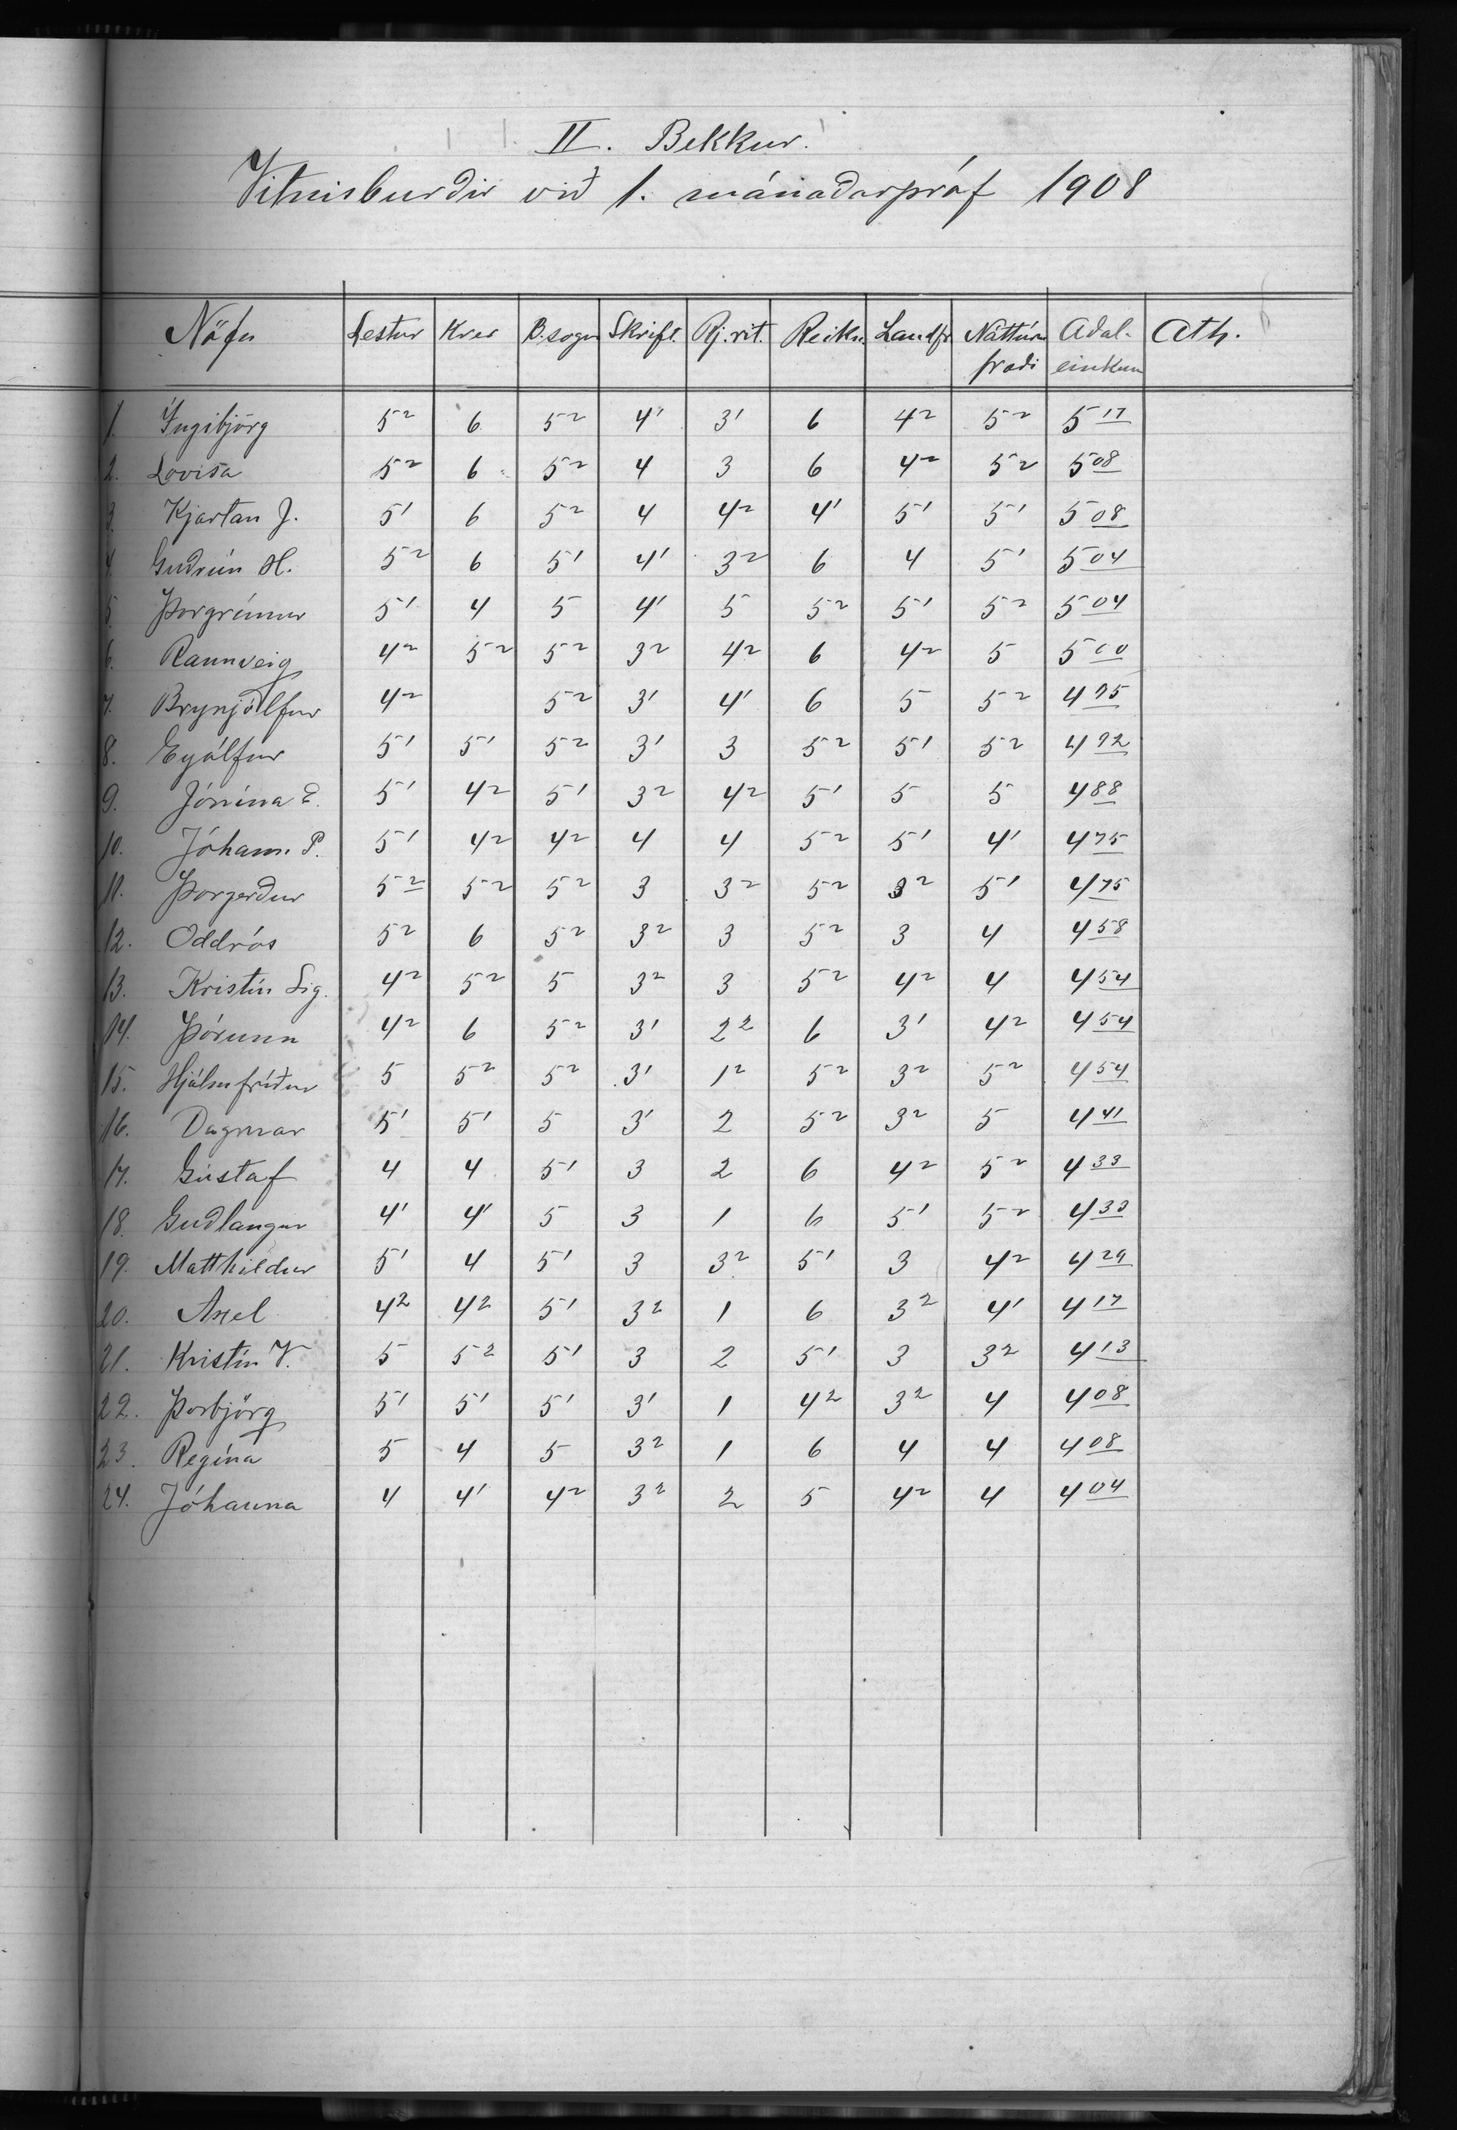 II. Bekkur.
Vitnisburðir við 1. mánaðarpróf 1908
Nöfn Lestur Kver B.sogur Skrift. Rj.rit. Reikn. Landfr Náttúru fræði Aðal- einkun Ath.
1. Ingibjörg 5² 6 5² 4' 3' 6 4² 5² 5 17
2. Lovísa 5² 6 5² 4 3 6 4² 5² 5 08
3. Kjartan J. 5' 6 5² 4 4² 4' 5' 5' 5 08
4. Guðrún H. 5² 6 5' 4' 3² 6 4 5' 5 04
5. Þorgrímur 5' 4 5 4' 5 5² 5' 5² 5 04
6. Rannveig 4² 5² 5² 3² 4² 6 4² 5 5 00
7. Brynjólfur 4² 5² 3' 4' 6 5 5² 4 95
8. Eyólfur 5' 5' 5² 3' 3 5² 5' 5² 4 92
9. Jónína E. 5' 4² 5' 3² 4² 5' 5 5 4 88
10. Jóhann P. 5' 4² 4² 4 4 5² 5' 4' 4 75
11. Þorgerður 5² 5² 5² 3 3² 5² 3² 5' 4 75
12. Oddrós 5² 6 5² 3² 3 5² 3 4 4 58
13. Kristín Sig. 4² 5² 5 3² 3 5² 4² 4 4 54
14. Þórunn 4² 6 5² 3' 2² 6 3' 4² 4 54
15. Hjálmfríður 5 5² 5² 3' 1² 5² 3² 5² 4 54
16. Dagmar 5' 5' 5 3' 2 5² 3² 5 4 41
17. Gústaf 4 4 5' 3 2 6 4² 5² 4 33
18. Guðlaugur 4' 4' 5 3 1 6 5' 5² 4 33
19. Matthildur 5' 4 5' 3 3² 5' 3 4² 4 29
20. Axel 4² 4² 5' 3² 1 6 3² 4' 4 17
21. Kristín V. 5 5² 5' 3 2 5' 3 3² 4 13
22. Þorbjörg 5' 5' 5' 3' 1 4² 3² 4 4 08
23. Regína 5 4 5 3² 1 6 4 4 4 08
24. Jóhanna 4 4' 4² 3² 2 5 4² 4 4 04